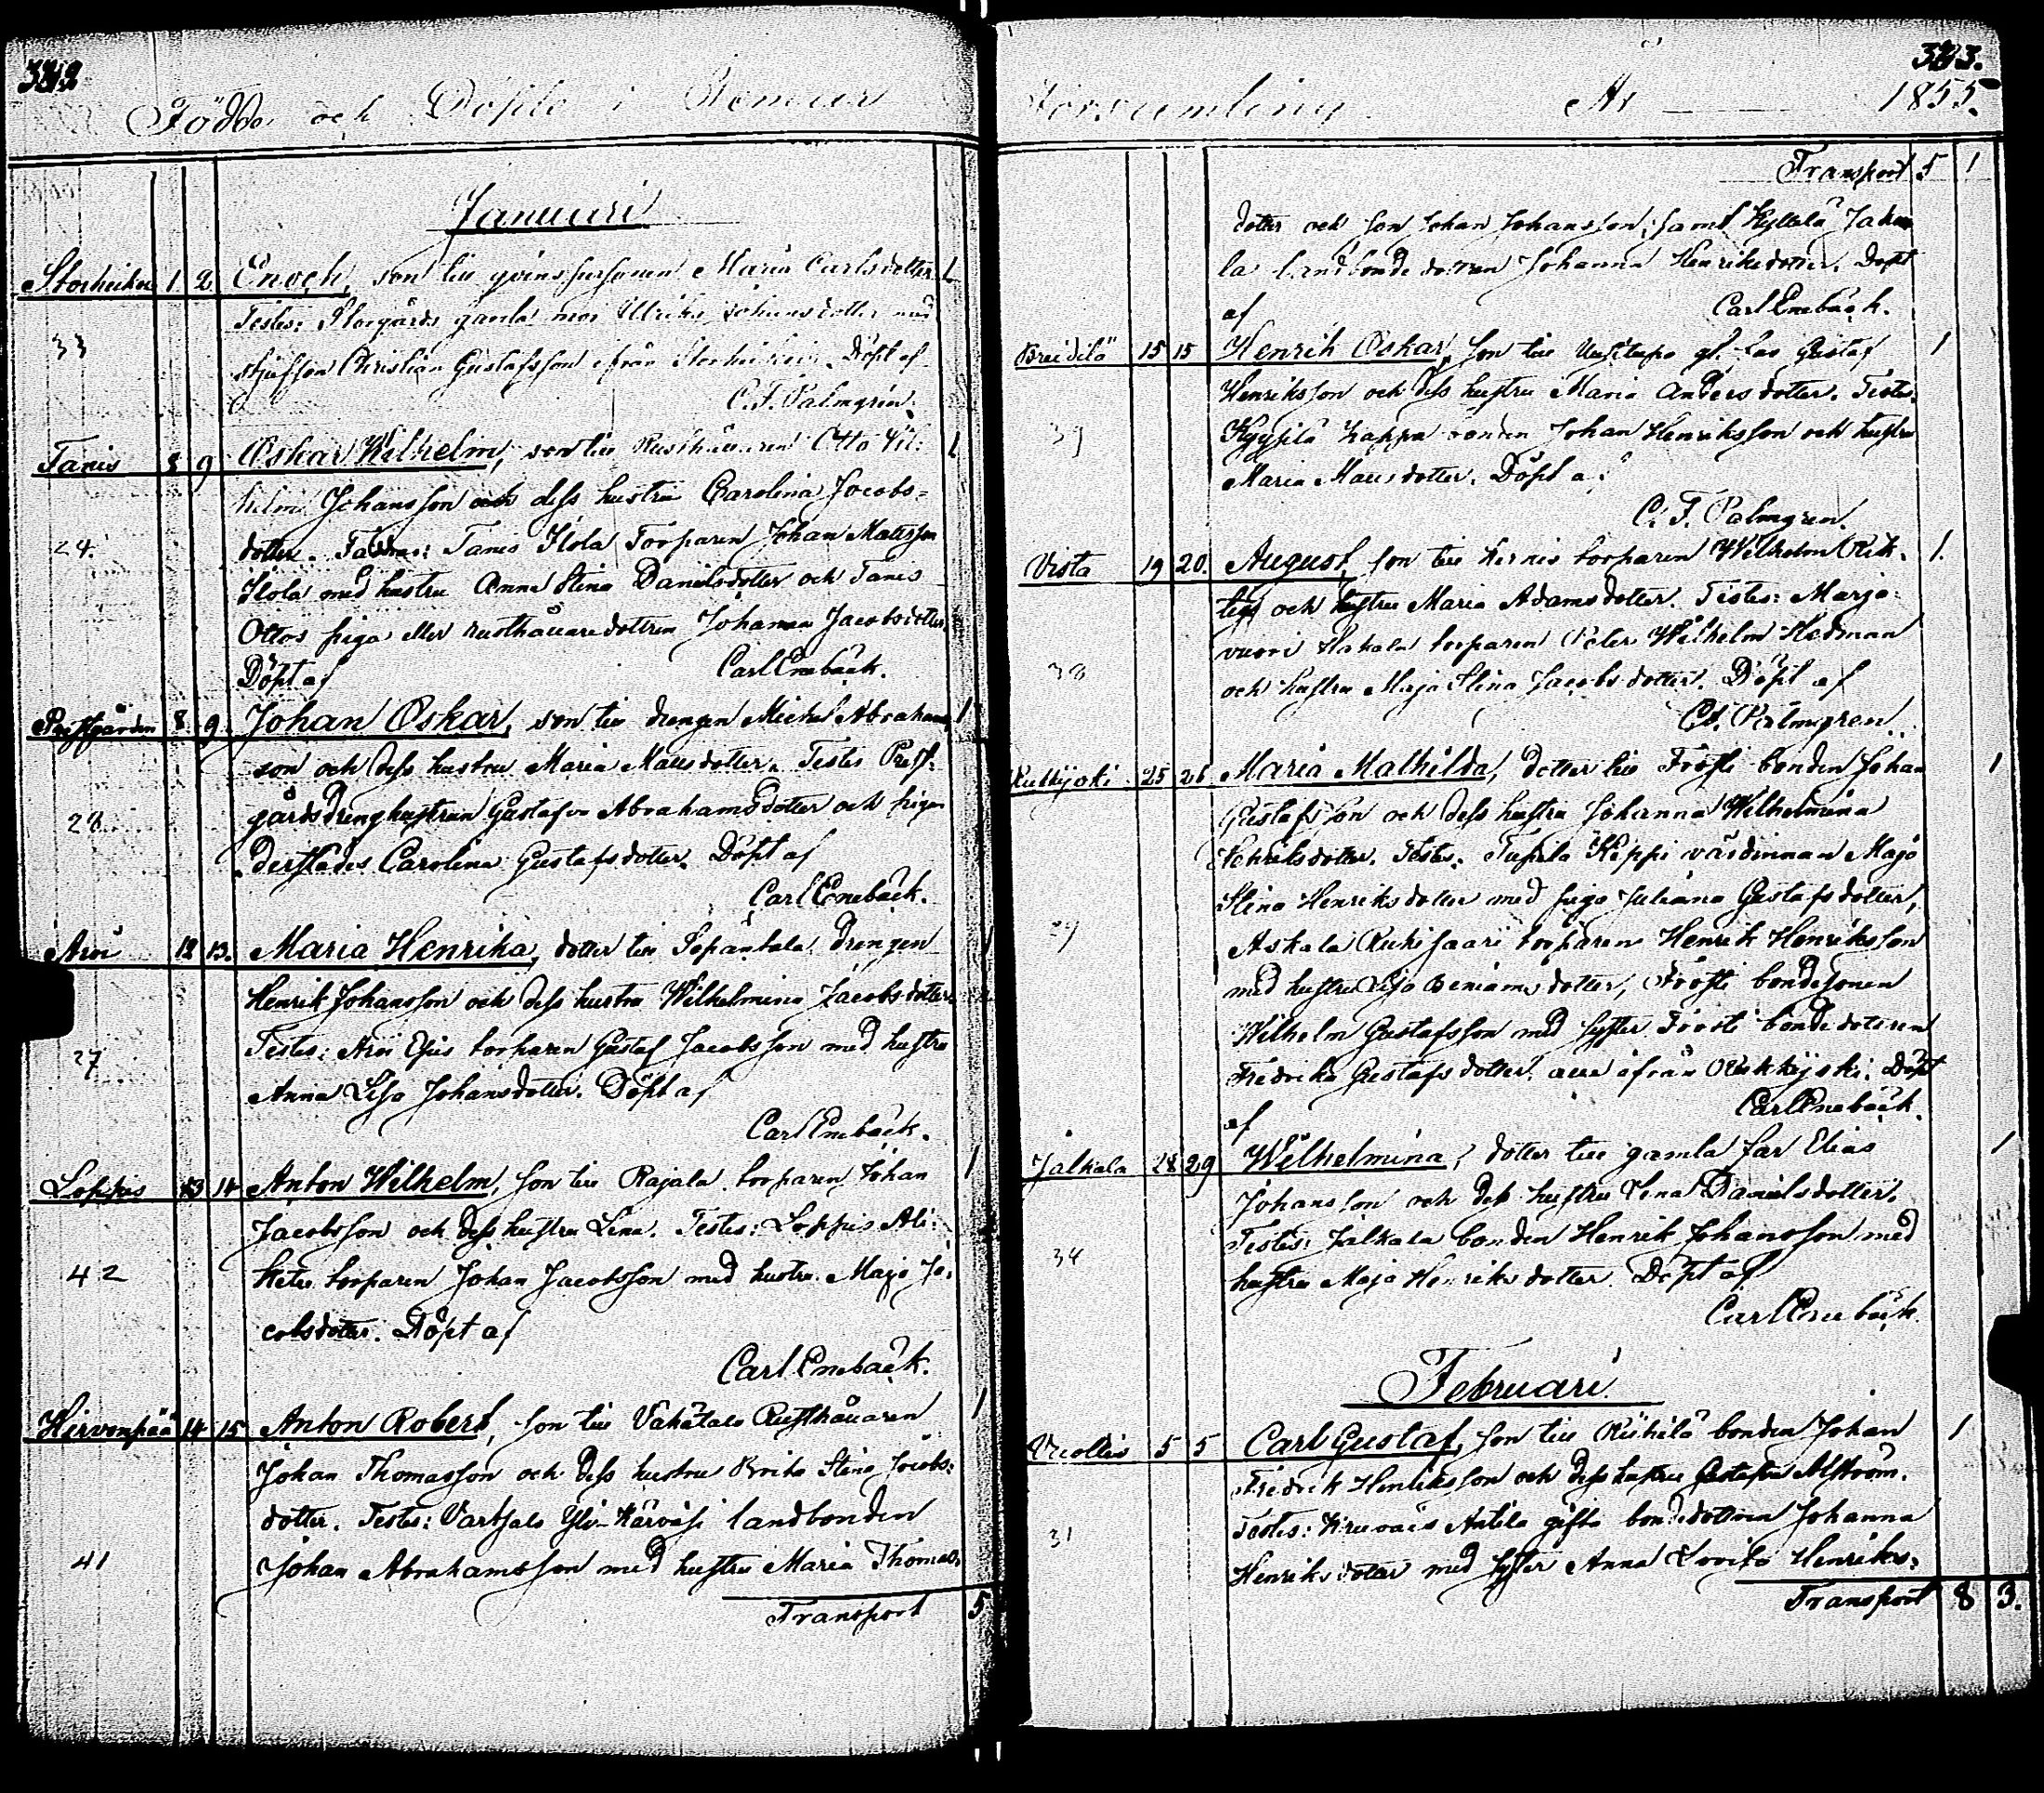 Födde och Döpte i
Januari
Storheikkilä 1 2 Enoch, son till qvinspersonen Maria Carlsdotter 1
Testes: Storgårds gamla mor Ulrika Johansdotter med
33
styfson Christian Gustafsson ifrån Döpt af
C. F. Palmgren.
Tanis 8 9 Oskar Wilhelm, son till Rusthållaren Otto Wil- 1
helm Johansson och dess hustru Carolina Jacobs-
24.
dotter. Tanis Ilola Torparen Johan Matsson
Ilola med hustru Anna Stina Danielsdotter och Tanis
Ottos piga eller rusthållaredottren Johanna Jacobsdotter.
Döpt af Carl Enebäck.
Prestgården 8. 9. Johan Oskar, son till drengen Michel Abraham- 1
son och dess hustru Maria Mattsdotter. Testes Prest-
28
gårds drenghustrun Gustafva Abrahamsdotter och pigan
derstädes Carolina Gustafsdotter. Döpt af
Carl Enebäck.
Aroi 12 13. Maria Henrika, dotter till drengen 1
Henrik Johansson och dess hustru Wilhelmina Jacobsdotter.
27
Testes: Aroi torparen Gustaf Jacobsson med hustru
Anna Lisa Johansdotter. Döpt af
Carl Enebäck.
Loppis 13 14 Anton Wilhelm, son till Rajala torparen Johan 1
Jacobsson och dess hustru Lena. Testes: Loppis Ali-
42
torparen Johan Jacobsson med hustru Maja Ja-
cobsdotter. Döpt af
Carl Enebäck.
Hirvonpää 14 15 Anton Robert, son till Vähätalo Rusthållaren 1
Johan Thomasson och dess hustru Brita Stina Jacobs-
dotter. Testes: Vartsalo Yli-Kärväsi landbonden
41
Johan Abrahamsson med hustru Maria Thomas-
Transport 5
Församling År 1855.
Transport 5 1
dotter och son Johan Johansson; samt
la landbonde dottren Johanna Henriksdotter. Döpt
af Carl Enebäck.
15 15 Henrik Oskar, son till gl. far Gustaf 1
Henriksson och dess hustru Maria Andersdotter. Testes:
39
bonden Johan Henriksson och hustru
Maria Mattsdotter. Döpt af
C. F. Palmgren.
Vista 19 20. August, son till torparen Wilhelm 1.
och hustru Maria Adamsdotter. Testes: Marja-
vuori Hakala torparen Peter Wilhelm Hedman
38
och hustru Maja Stina Jacobsdotter. Döpt af
C. F. Palmgren.
Rukkijoki 25 26 Maria Mathilda, dotter till Frösti bonden Johan 1
Gustafsson och dess hustru Johanna Wilhelmina
Testes: Tupila värdinnan Maja
Stina Henriksdotter med piga Juliana Gustafsdotter,
29
Askala Rukisaari torparen Henrik Henriksson
med hustru Lisa Beniamsdotter, Frösti bondesonen
Wilhelm Gustafsson med syster Frösti bondedottren
Fredrika Gustafsdotter, alla ifrån Rukkijoki. Döpt
af Carl Enebäck.
Jalkala 28 29 Wilhelmina, dotter till gamla far Elias 1
Johansson och dess hustru Lena Danielsdotter.
34
Testes: Jalkala bonden Henrik Johansson med
hustru Maja Henriksdotter. Döpt af
Carl Enebäck.
Februari
Vuollis 5 5 Carl Gustaf, son till Riihilä bonden Johan 1
Fredrik Henriksson och dess hustru Gustafva Alström.
31
Testes: Antila gifta bondedottren Johanna
Henriksdotter med syster Anna Lovisa Henriks-
Transport 8 3.